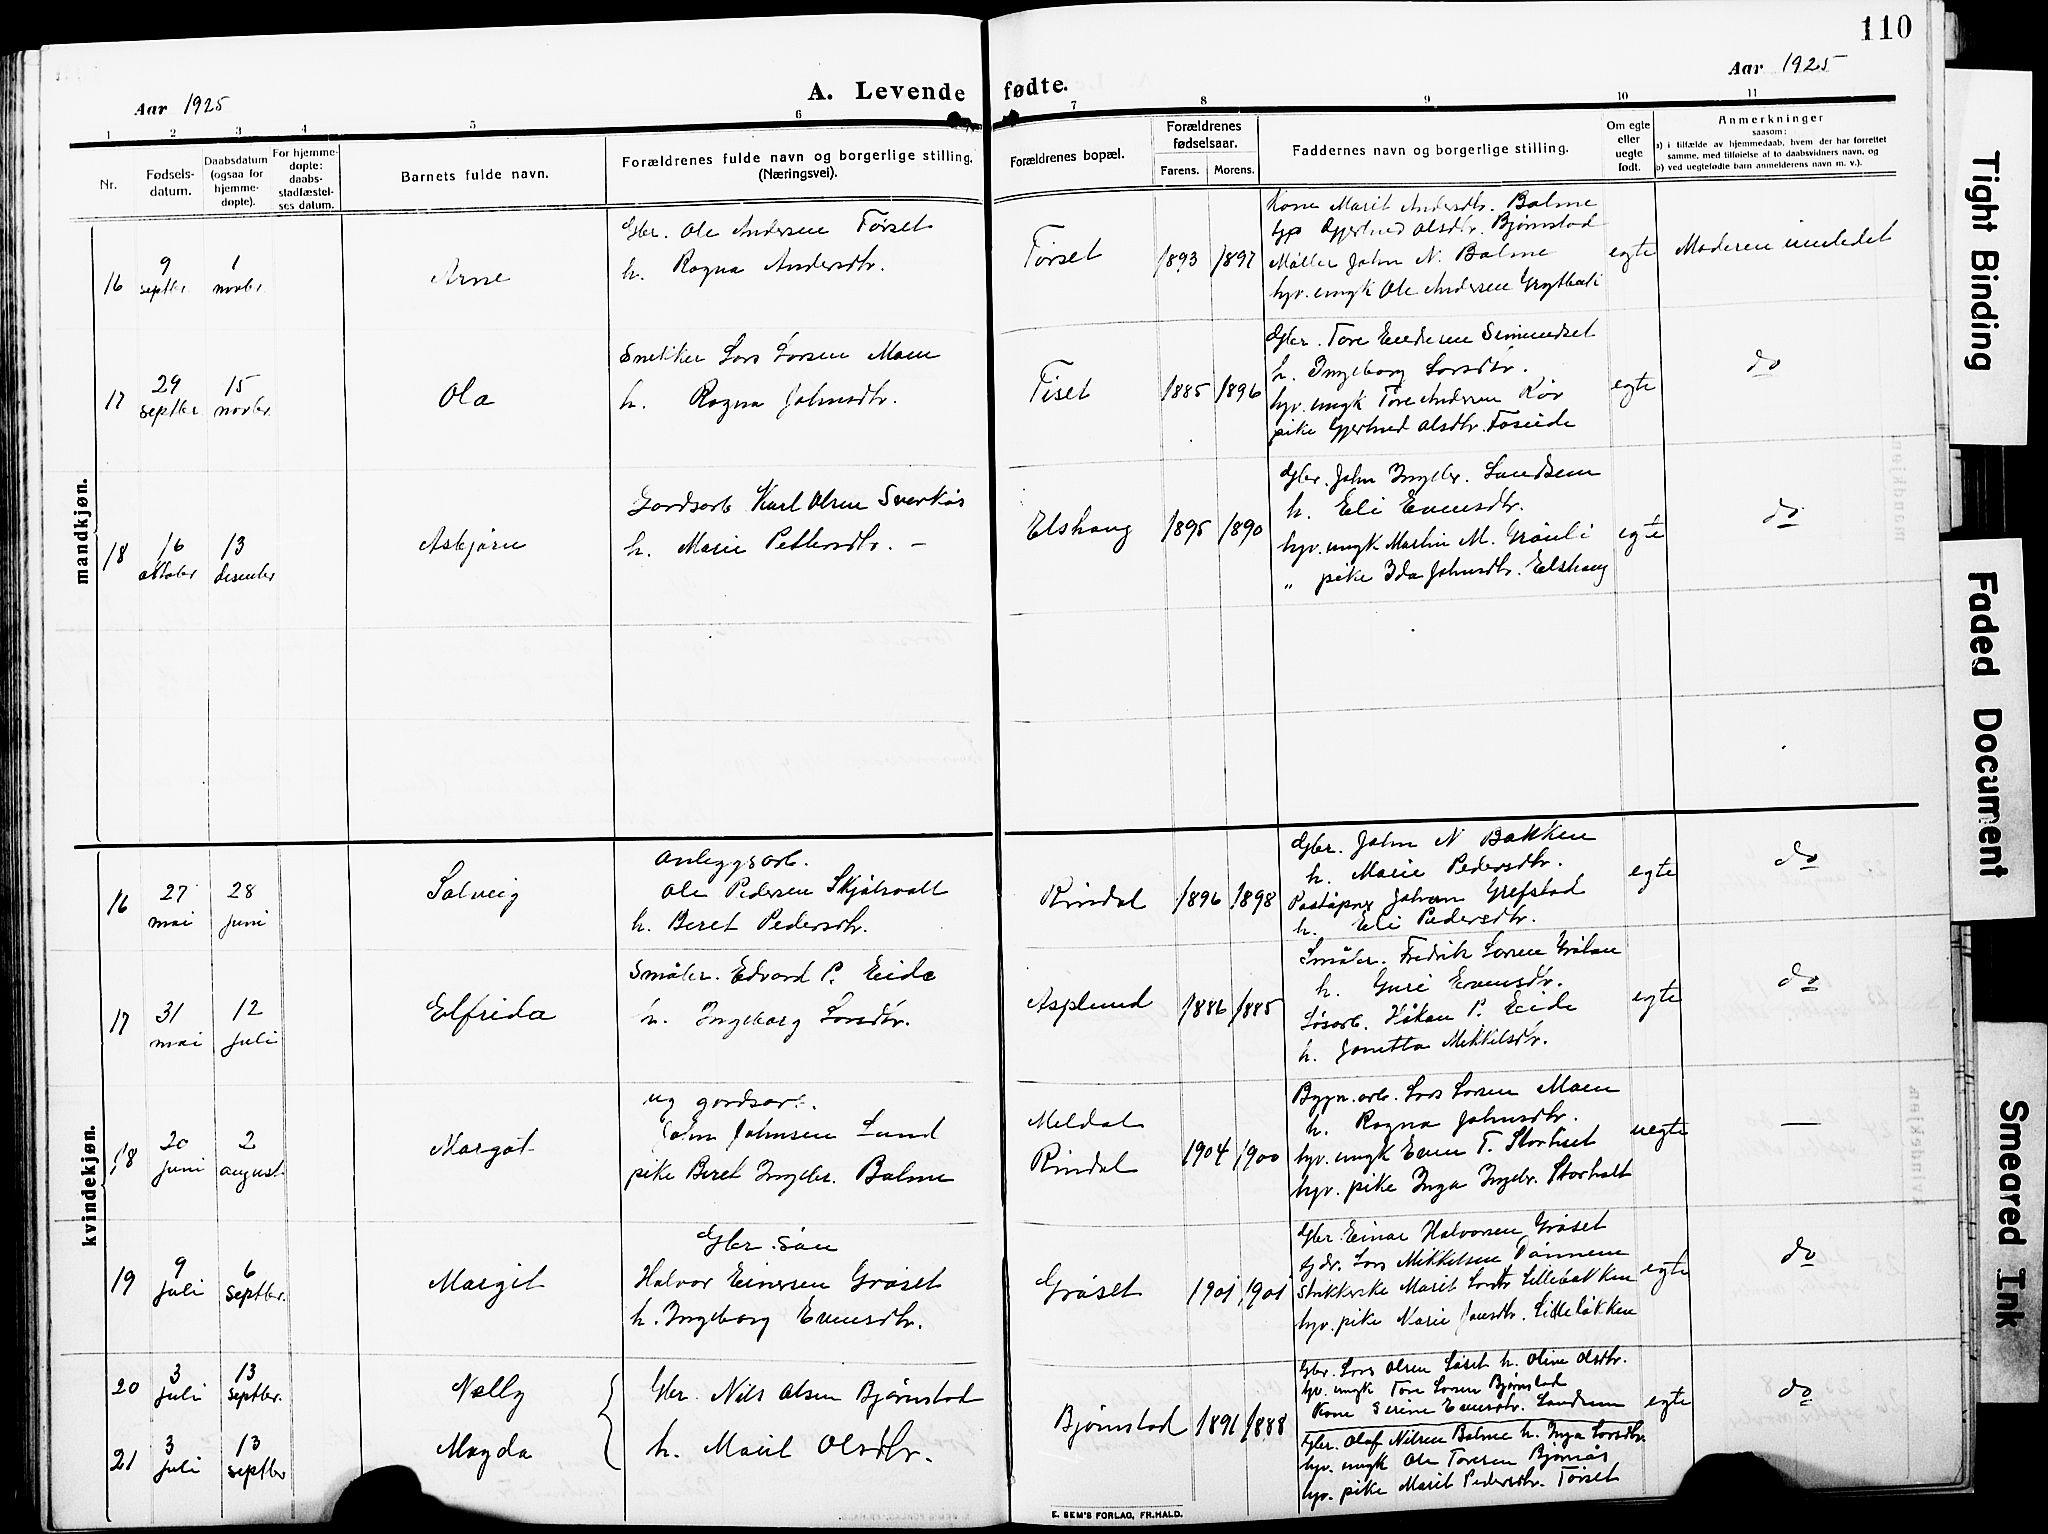 110
Aar 1925
A. Levende fødte.
Aar 1925
1 2 3 4 5 6 7 8 9 10 11
Nr.
Fødsels-
datum.
Daabsdatum
(ogsaa for
hjemme-
døpte).
For hjemme-
døpte:
daabs-
stadfæstel-
ses datum.
Barnets fulde navn.
Forældrenes fulde navn og borgerlige stilling.
(Næringsvei).
Forældrenes bopæl.
Forældrenes
fødselsaar.
Farens. Morens.
Faddernes navn og borgerlige stilling.
Om egte
eller
uegte
født.
Anmerkninger
saasom:
a) i tilfælde av hjemmedaab, hvem der har forrettet
samme, med tilføielse af to daabsvidners navn, og
b) ved uegtefødte barn anmelderens navn m. v.).
mandkjøn.
16
9
septbr
1
novbr
Arne
Gbr. Ole Andersen Torset
h. Ragna Andersdtr.
Torset
1893 1897
Kone Marit Andersdtr. Bolme
Gjertrud Olsdtr. Bjørnstad
Møller John N. Bolme
hjv. ungk Ole Andersen
egte
Moderen innledet
17
29
septbr
15
novbr.
Ola
Snekker Lars Larsen Moen
h. Ragna Johnsdtr.
Tiset
1885 1896
Gbr. Tore Endresen
h. Ingeborg Larsdtr.
hjv. ungk Tore Andersen
pike Gjertrud Olsdtr.
egte
do
18
16
oktober
13
desember
Asbjørn
Gardsarb Karl Olsen Sverkås
h. Marie Pettersdtr. –
Elshaug
1895 1890
Gbr. John Ingebr. Landsem
h. Eli Evensdtr.
hjv. ungk Martin M. Grønli
„ pike Ida Johnsdtr. Elshaug
egte
do
kvindekjøn.
16
27
mai
28
juni
Solveig
Anleggsarb.
Ole Pedersen Skjølsvoll
h. Beret Pedersdtr.
Rindal
1896 1898
Gbr. John N Bakken
h. Marie Pedersdtr.
Johan Grefstad
h. Eli Pedersdtr.
egte
do
17
31
mai
12
juli
Elfrida
Småbr. Edvard P. Eide
h. Ingeborg Larsdtr.
Asplund
1886 1885
Småbr. Fredrik Larsen
h. Guri Evensdtr.
Løsarb. Håkan P. Eide
h. Jonetta Mikkelsdtr.
egte
do
18
20
juni
2
august
Margot
ug gardsarb.
John Johnsen Lund
pike Beret Ingebr. Bolme
Meldal
Rindal
1904 1900
Bygn.arb. Lars Larsen Moen
h. Ragna Johnsdtr.
hjv. ungk Even T. Stortiset
hjv. pike Inga Ingebr. Storholt
uegte
—
19
9
juli
6
septbr.
Margit
Gbr. søn
Halvor Einersen Grøset
h. Ingeborg Evensdtr.
Grøset
1901 1901
Gbr. Einar Halvorsen Grøset
Lars Mikkelsen
Marit Larsdtr Lillebakken
hjv. pike Marie Jonsdtr. Lilleløkken
egte
do
20
3
juli
13
septbr.
Nelly
Gbr. Nils Olsen Bjørnstad
21
3
juli
13
septbr
Magda
h. Marit Olsdtr.
Bjørnstad
1891 1888
Gbr. Lars Olsen Løset h. Oline Olsdtr.
hjv. ungk Tore Larsen Bjørnstad
Kone Serine Evensdtr. Landsem
Gbr. Olaf Nilsen Bolme h. Inga Larsdtr.
hjv. ungk Ole Toresen Bjørnås
hjv. pike Marit Pedersdtr. Torset
egte
do
E. SEM'S FORLAG, FR.HALD.
Tight Binding
Faded Document
Smeared Ink